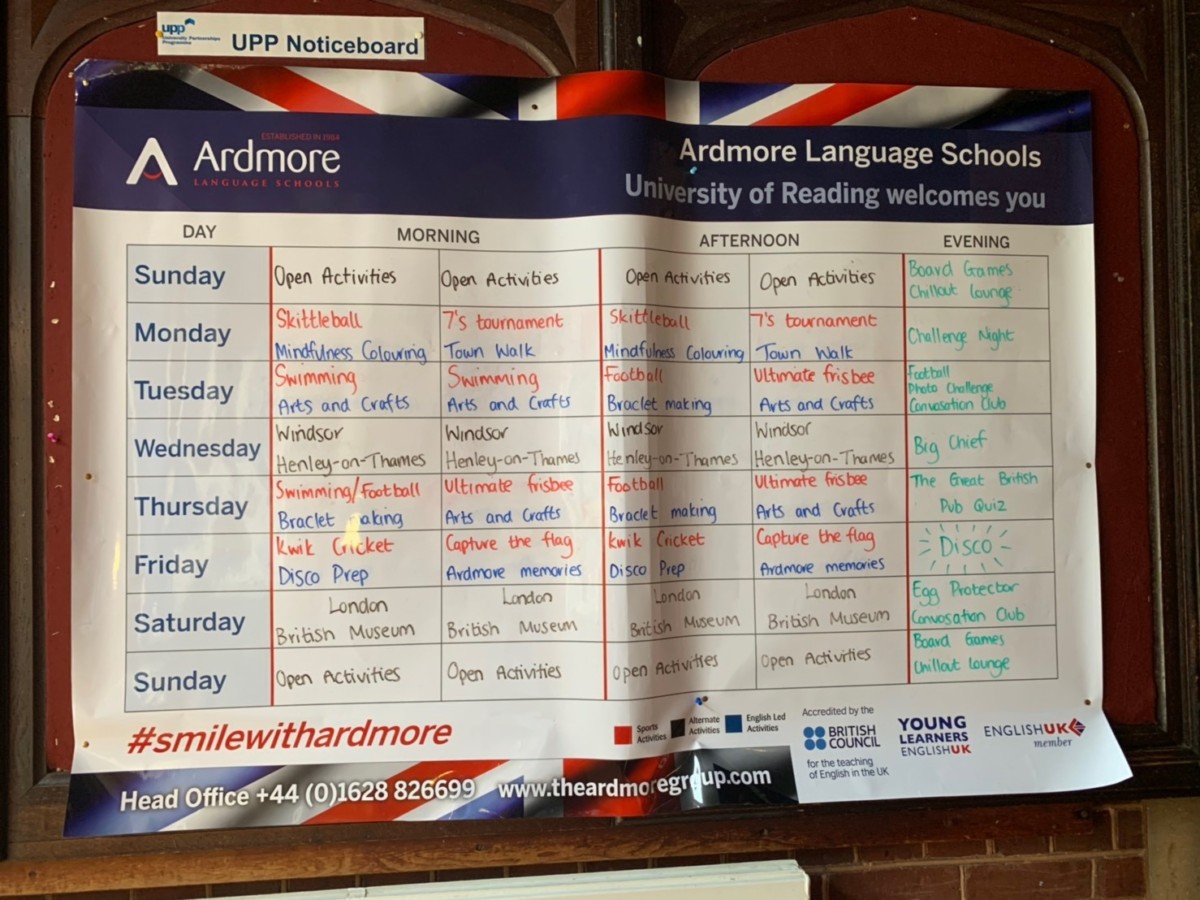 upp
University Partnerships
Programme
UPP Noticeboard
ESTABLISHED IN 1984
Ardmore
LANGUAGE SCHOOLS
Ardmore Language Schools
University of Reading welcomes you
DAY MORNING AFTERNOON EVENING
Sunday
Open Activities
Open Activities
Open Activities
Open Activities
Board Games
Chillout lounge
Monday
Skittleball
Mindfulness Colouring
7's tournament
Town Walk
Skittleball
Mindfulness Colouring
7's tournament
Town Walk
Challenge Night
Tuesday
Swimming
Arts and Crafts
Swimming
Arts and Crafts
Football
Braclet making
Ultimate frisbee
Arts and Crafts
Football
Photo Challenge
Convosation Club
Wednesday
Windsor
Henley-on-Thames
Windsor
Henley-on-Thames
Windsor
Henley-on-Thames
Windsor
Henley-on-Thames
Big Chief
Thursday
Swimming/Football
Braclet making
Ultimate frisbee
Arts and Crafts
Football
Braclet making
Ultimate frisbee
Arts and Crafts
The Great British
Pub Quiz
Friday
Kwik Cricket
Disco Prep
Capture the flag
Ardmore memories
Kwik Cricket
Disco Prep
Capture the flag
Ardmore memories
Disco
Saturday
London
British Museum
London
British Museum
London
British Museum
London
British Museum
Egg Protector
Convosation Club
Sunday
Open Activities
Open Activities
Open Activities
Open Activities
Board Games
Chillout lounge
#smilewithardmore
Sports
Activities
Alternate
Activities
English Led
Activities
Accredited by the
BRITISH
COUNCIL
for the teaching
of English in the UK
YOUNG
LEARNERS
ENGLISHUK
ENGLISHUK
member
Head Office +44 (0)1628 826699 www.theardmoregroup.com